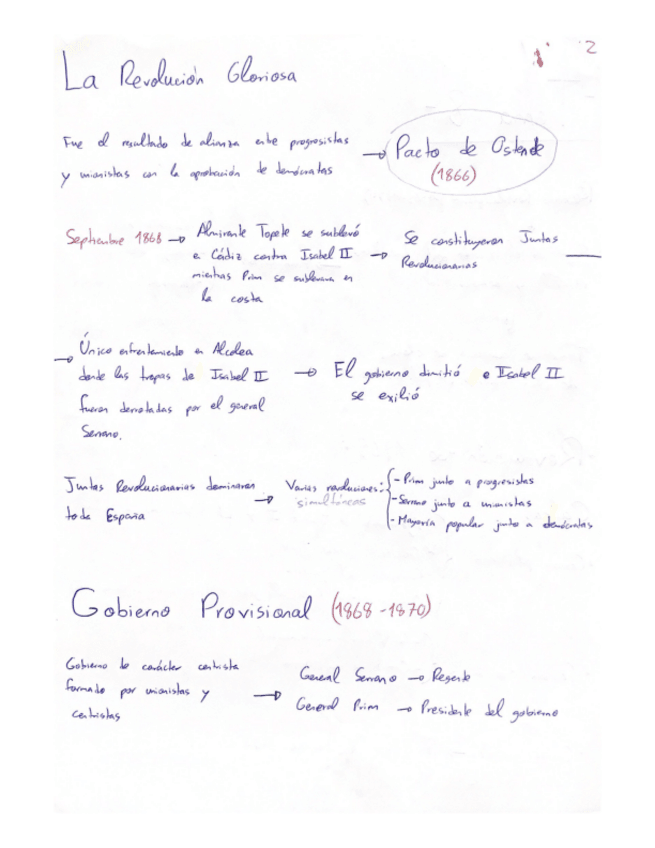 2
La Revolución Gloriosa
Fue el resultado de alianza entre progresistas
y unionistas con la aprobación de demócratas
→ Pacto de Ostende
(1866)
Septiembre 1868 → Almirante Topete se sublevó
e Cádiz contra Isabel II
mientras Prim se sublevava en
la costa
→ Se constituyeron Juntas
Revolucionarias
→ Único enfrentamiento en Alcolea
donde las tropas de Isabel II
fueron derrotadas por el general
Serrano.
→ El gobierno dimitió e Isabel II
se exilió
Juntas Revolucionarias dominaron
toda España
→ Varias revoluciones:
simultáneas
- Prim junto a progresistas
- Serrano junto a unionistas
- Mayoría popular junto a demócratas
Gobierno Provisional (1868-1870)
Gobierno de carácter centrista
formado por unionistas y
centristas
→ General Serrano → Regente
General Prim → Presidente del gobierno